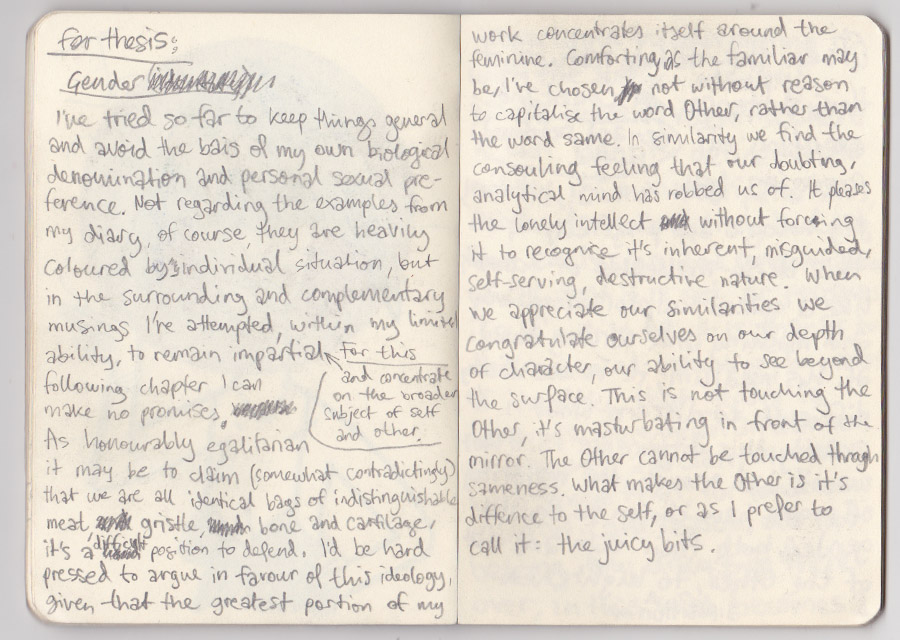 for thesis:
Gender
I've tried so far to keep things general
and avoid the bais of my own biological
denomination and personal sexual pre-
ference. Not regarding the examples from
my diary, of course, they are heavily
coloured by individual situation, but
in the surrounding and complementary
musings I've attempted, within my limited
ability, to remain impartial. For this
and concentrate
on the broader
subject of self
and other.
following chapter I can
make no promises.
As honourably egalitarian
it may be to claim (somewhat contradictingly)
that we are all identical bags of indistinguishable
meat, gristle, bone and cartilage,
it's a difficult position to defend. I'd be hard
pressed to argue in favour of this ideology,
given that the greatest portion of my
work concentrates itself around the
feminine. Comforting as the familiar may
be, I've chosen not without reason
to capitalise the word Other, rather than
the word same. In similarity we find the
consouling feeling that our doubting,
analytical mind has robbed us of. It pleases
the lonely intellect without forcing
it to recognise it's inherent, misguided,
self-serving, destructive nature. When
we appreciate our similarities we
congratulate ourselves on our depth
of character, our ability to see beyond
the surface. This is not touching the
Other, it's masturbating in front of the
mirror. The Other cannot be touched through
sameness. What makes the Other is it's
diffence to the self, or as I prefer to
call it: the juicy bits.